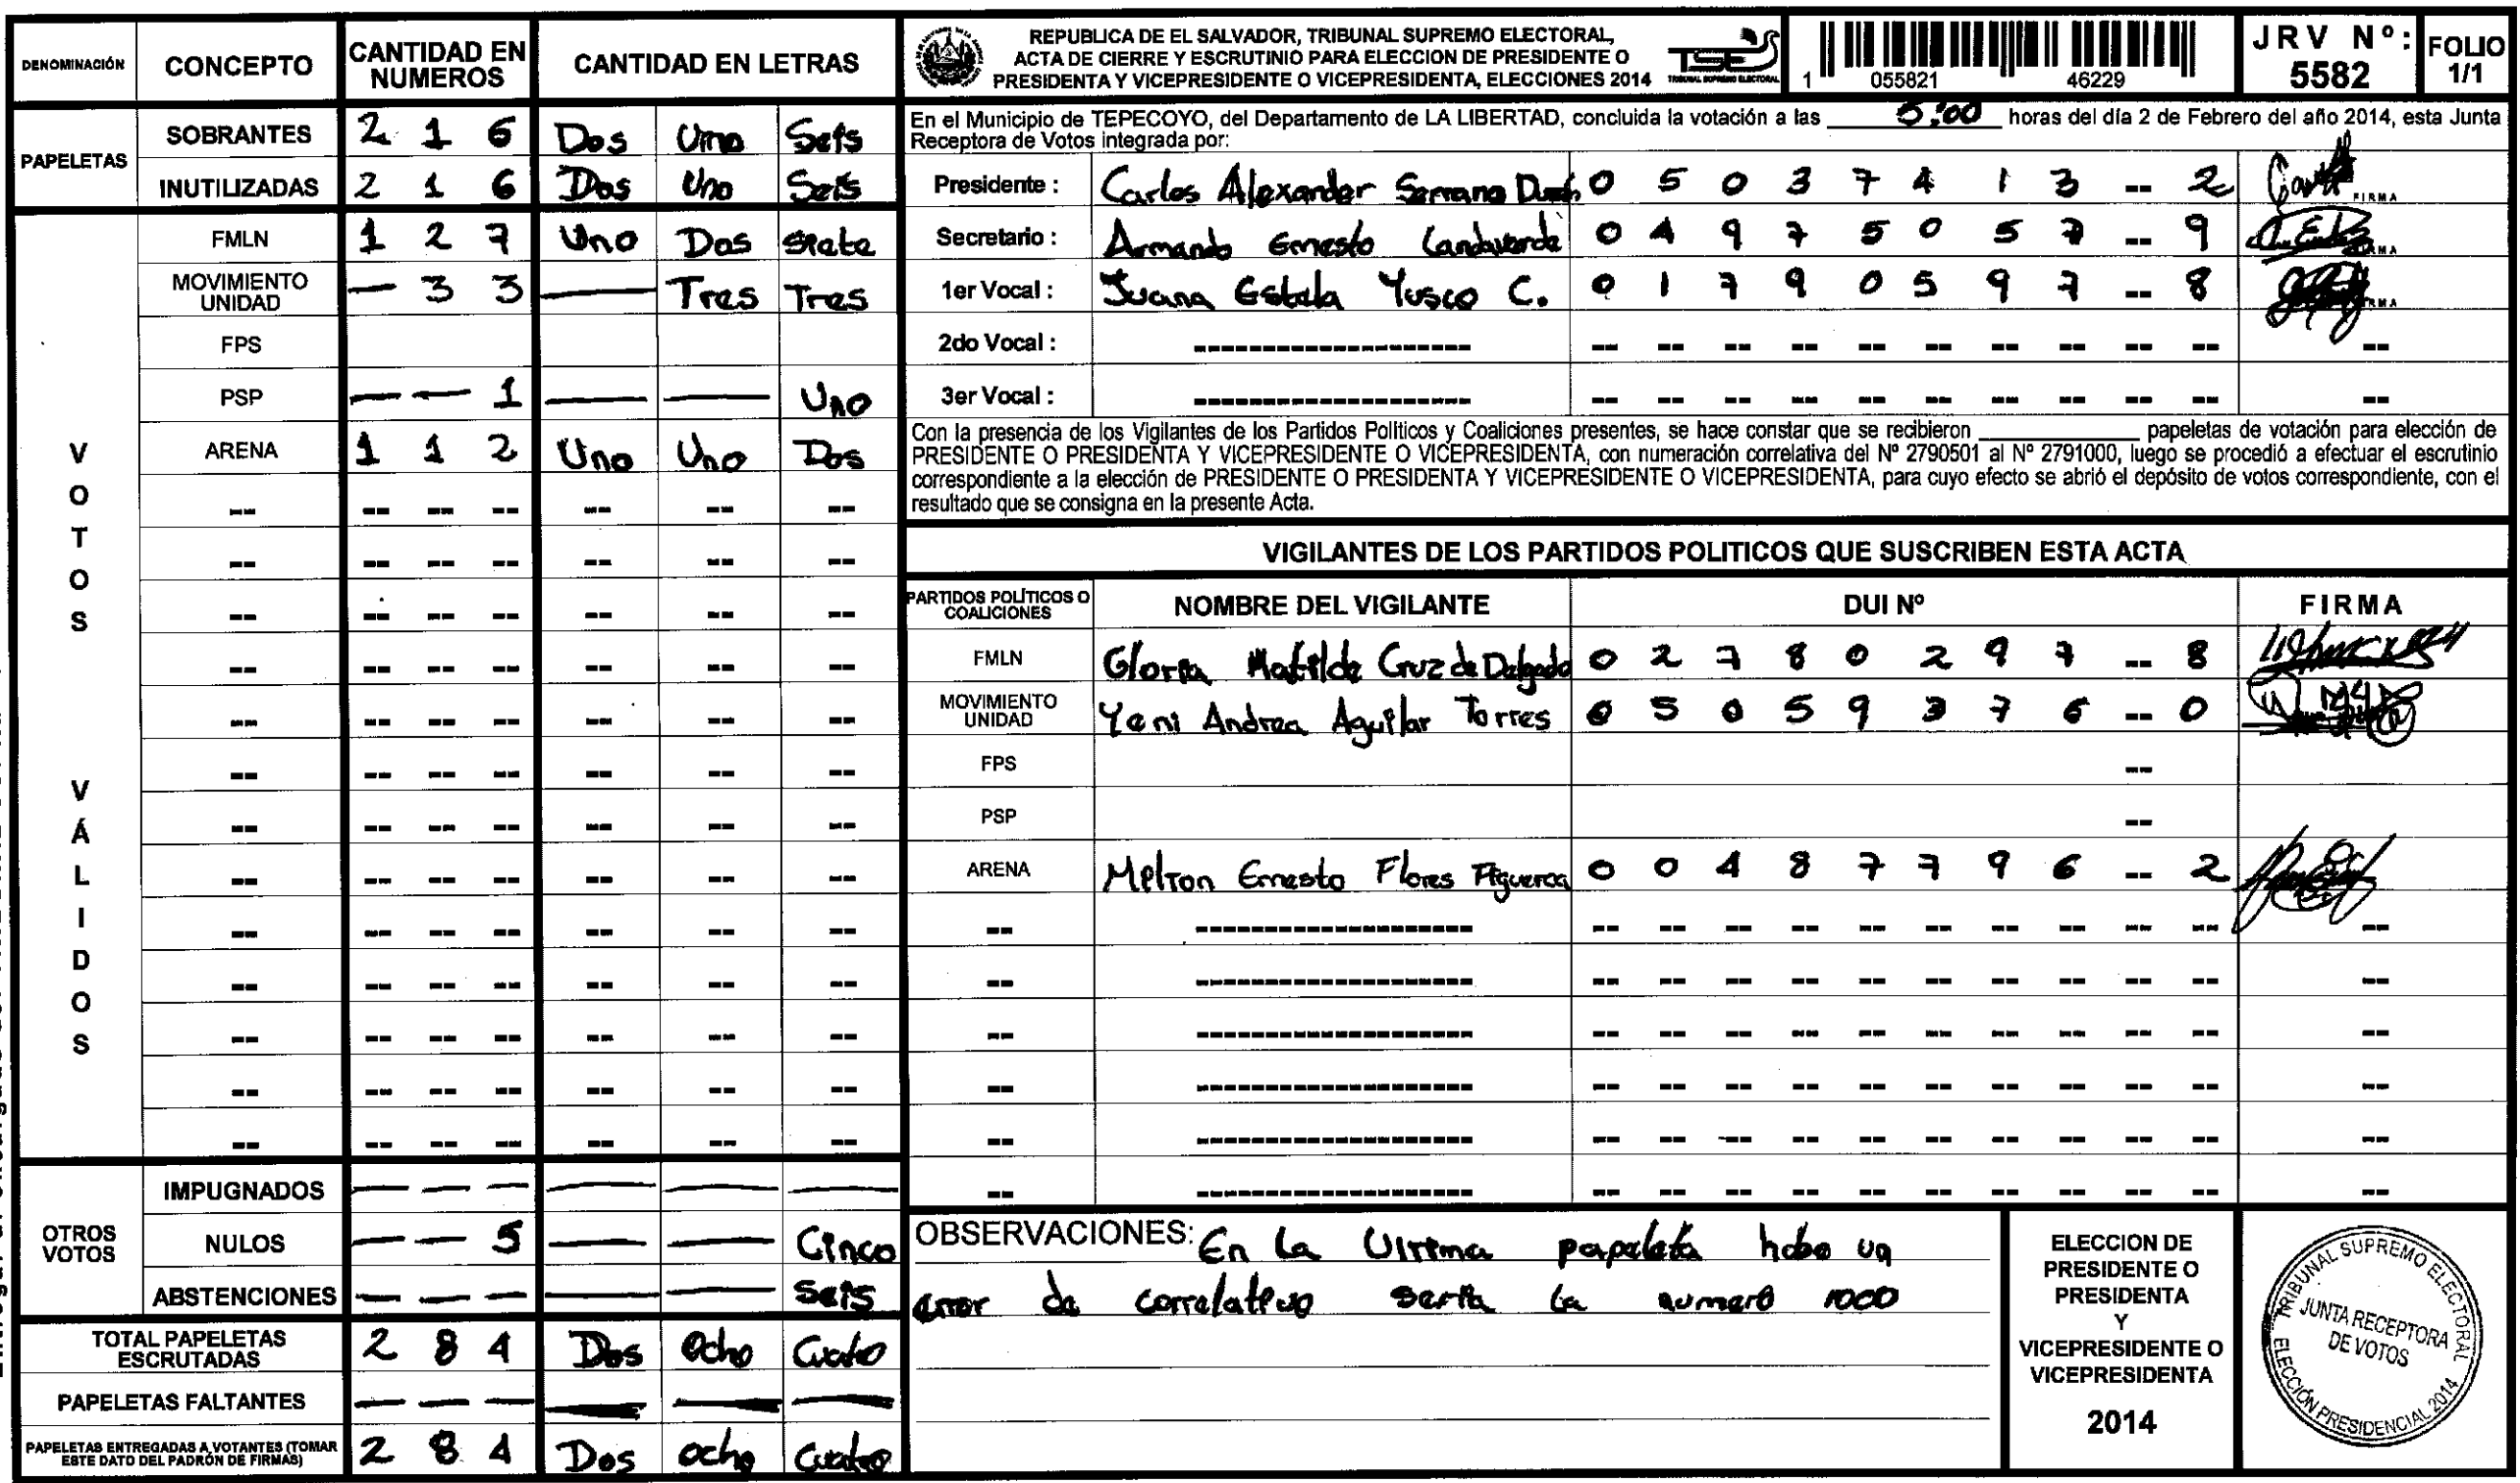 DENOMINACIÓN CONCEPTO CANTIDAD EN NUMEROS CANTIDAD EN LETRAS
PAPELETAS
SOBRANTES 2 1 6 Dos Uno Seis
INUTILIZADAS 2 1 6 Dos Uno Seis
VOTOS VÁLIDOS
FMLN 1 2 7 Uno Dos siete
MOVIMIENTO UNIDAD — 3 3 — Tres Tres
FPS
PSP — — 1 — — Uno
ARENA 1 1 2 Uno Uno Dos
OTROS VOTOS
IMPUGNADOS — — — — — —
NULOS — — 5 — — Cinco
ABSTENCIONES — — — — — Seis
TOTAL PAPELETAS ESCRUTADAS 2 8 4 Dos Ocho Cuatro
PAPELETAS FALTANTES — — — — — —
PAPELETAS ENTREGADAS A VOTANTES (TOMAR ESTE DATO DEL PADRÓN DE FIRMAS) 2 8 4 Dos ocho Cuatro
REPUBLICA DE EL SALVADOR, TRIBUNAL SUPREMO ELECTORAL,
ACTA DE CIERRE Y ESCRUTINIO PARA ELECCION DE PRESIDENTE O
PRESIDENTA Y VICEPRESIDENTE O VICEPRESIDENTA, ELECCIONES 2014
TSE
TRIBUNAL SUPREMO ELECTORAL
1 055821 46229
JRV Nº: 5582
FOLIO 1/1
En el Municipio de TEPECOYO, del Departamento de LA LIBERTAD, concluida la votación a las 5:00 horas del día 2 de Febrero del año 2014, esta Junta
Receptora de Votos integrada por:
Presidente : Carlos Alexander Serrano 0 5 0 3 7 4 1 3 -- 2 FIRMA
Secretario : Armando Ernesto Landaverde 0 4 9 7 5 0 5 7 -- 9 FIRMA
1er Vocal : Juana Estela Yusco C. 0 1 7 9 0 5 9 7 -- 8 FIRMA
2do Vocal :
3er Vocal :
Con la presencia de los Vigilantes de los Partidos Políticos y Coaliciones presentes, se hace constar que se recibieron ________ papeletas de votación para elección de
PRESIDENTE O PRESIDENTA Y VICEPRESIDENTE O VICEPRESIDENTA, con numeración correlativa del Nº 2790501 al Nº 2791000, luego se procedió a efectuar el escrutinio
correspondiente a la elección de PRESIDENTE O PRESIDENTA Y VICEPRESIDENTE O VICEPRESIDENTA, para cuyo efecto se abrió el depósito de votos correspondiente, con el
resultado que se consigna en la presente Acta.
VIGILANTES DE LOS PARTIDOS POLITICOS QUE SUSCRIBEN ESTA ACTA
PARTIDOS POLÍTICOS O COALICIONES NOMBRE DEL VIGILANTE DUI Nº FIRMA
FMLN Gloria Matilde Cruz de Delgado 0 2 7 8 0 2 9 7 -- 8
MOVIMIENTO UNIDAD Yeni Andrea Aguilar Torres 0 5 0 5 9 3 7 6 -- 0
FPS --
PSP --
ARENA Melton Ernesto Flores Figueroa 0 0 4 8 7 7 9 6 -- 2
OBSERVACIONES: En La Ultima papeleta hobo un
error de correlativo seria la numero 1000
ELECCION DE
PRESIDENTE O
PRESIDENTA
Y
VICEPRESIDENTE O
VICEPRESIDENTA
2014
TRIBUNAL SUPREMO ELECTORAL
JUNTA RECEPTORA
DE VOTOS
ELECCIÓN PRESIDENCIAL 2014